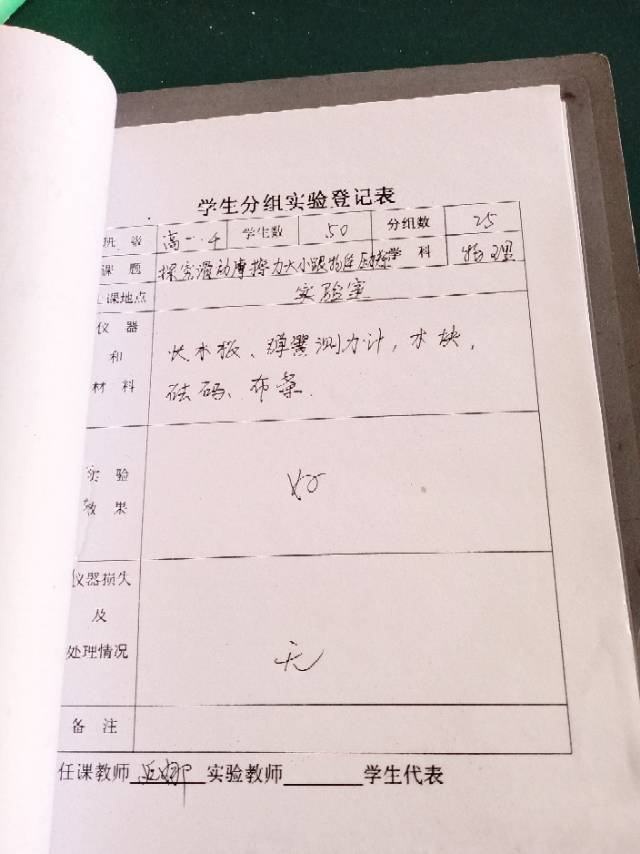 学生分组实验登记表
班级 高一 学生数 50 分组数 25
课题 探究滑动摩擦力大小跟物体 学科 物理
课地点 实验室
仪器
和
材料
长木板、弹簧测力计，木块，
砝码、布条.
实验
效果
好
仪器损失
及
处理情况
无
备注
任课教师 娜 实验教师 学生代表